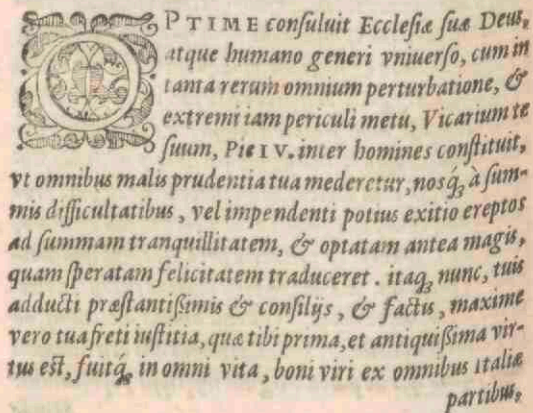 OPTIME conſuluit Eccleſiæ ſuæ Deus,
atque humano generi vniuerſo, cum in
tanta rerum omnium perturbatione, &
extremi iam periculi metu, Vicarium te
ſuum, Pie IV. inter homines conſtituit,
vt omnibus malis prudentia tua mederetur, nosq́; à ſum-
mis difficultatibus, vel impendenti potius exitio ereptos
ad ſummam tranquillitatem, & optatam antea magis,
quam ſperatam felicitatem traduceret. itaq; nunc, tuis
adducti præſtantißimis & conſilijs, & factis, maxime
vero tua freti iuſtitia, quæ tibi prima, et antiquißima vir-
tus eſt, fuitq́; in omni vita, boni viri ex omnibus Italiæ
partibus,